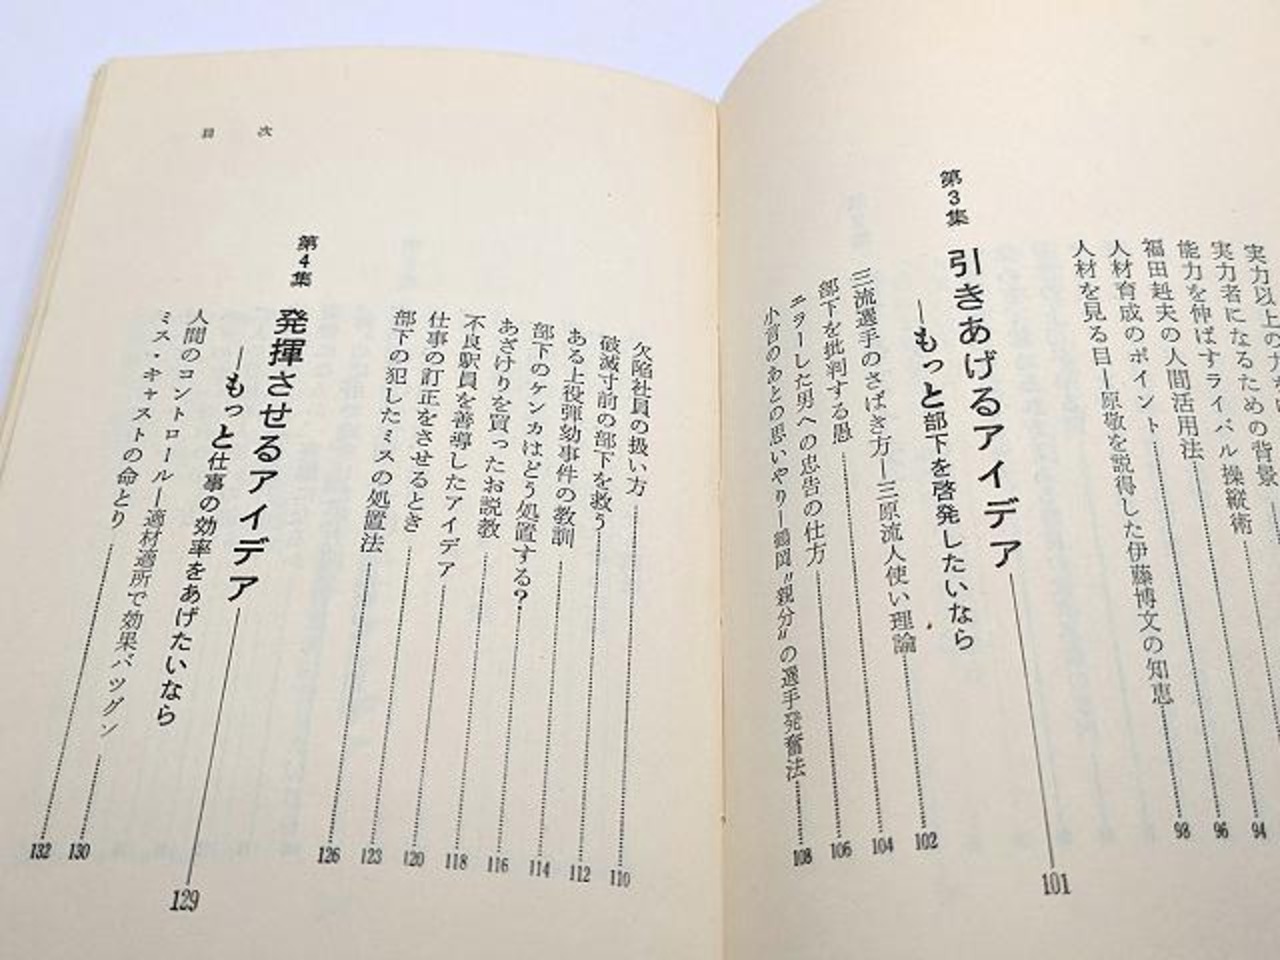 実力以上の力を
94
実力者になるための背景
96
能力を伸ばすライバル操縦術
98
福田赳夫の人間活用法
人材育成のポイント
人材を見る目―原敬を説得した伊藤博文の知恵
第3集 引きあげるアイデア 101
―もっと部下を啓発したいなら
三流選手のさばき方―三原流人使い理論 102
部下を批判する愚 104
エラーした男への忠告の仕方 106
小言のあとの思いやり―鶴岡〝親分〟の選手発奮法 108
目次
欠陥社員の扱い方 110
破滅寸前の部下を救う 112
ある上役弾劾事件の教訓 114
部下のケンカはどう処置する? 116
あざけりを買ったお説教 118
不良駅員を善導したアイデア 120
仕事の訂正をさせるとき 123
部下の犯したミスの処置法 126
第4集 発揮させるアイデア 129
―もっと仕事の効率をあげたいなら
人間のコントロール―適材適所で効果バツグン 130
ミス・キャストの命とり 132